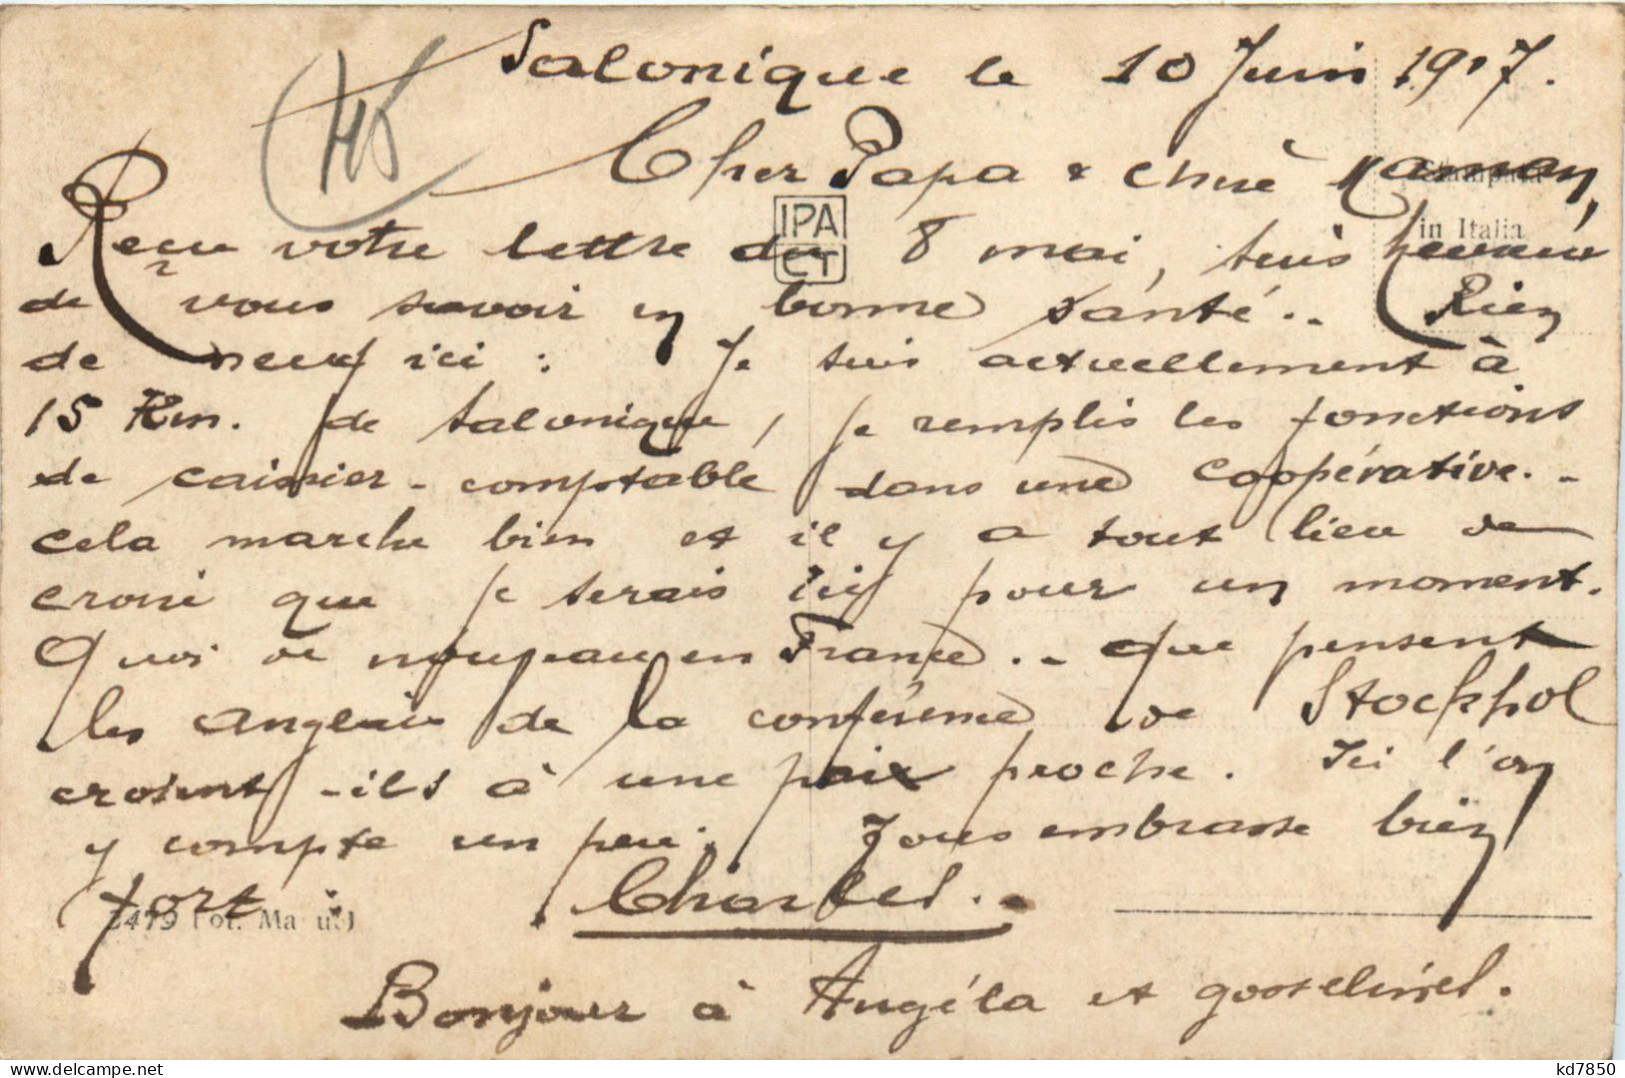 Salonique le 10 Juin 1917.
Cher Papa & chère Maman,
Reçu votre lettre du 8 mai, suis heureux
de vous savoir en bonne santé.. Rien
de neuf ici : Je suis actuellement à
15 Km. de Salonique, je remplis les fonctions
de caissier - comptable dans une coopérative. -
cela marche bien et il y a tout lieu de
croire que je serais ici pour un moment.
Quoi de nouveau en France. - que pensent
les anglais de la conférence de Stockhol
croient - ils à une paix proche. Ici l'on
y compte un peu. Vous embrasse bien
fort.
Charles. -
Bonjour à Angéla et gosselines.
IPA
CT
Stampata
in Italia
3479
45
kd7850